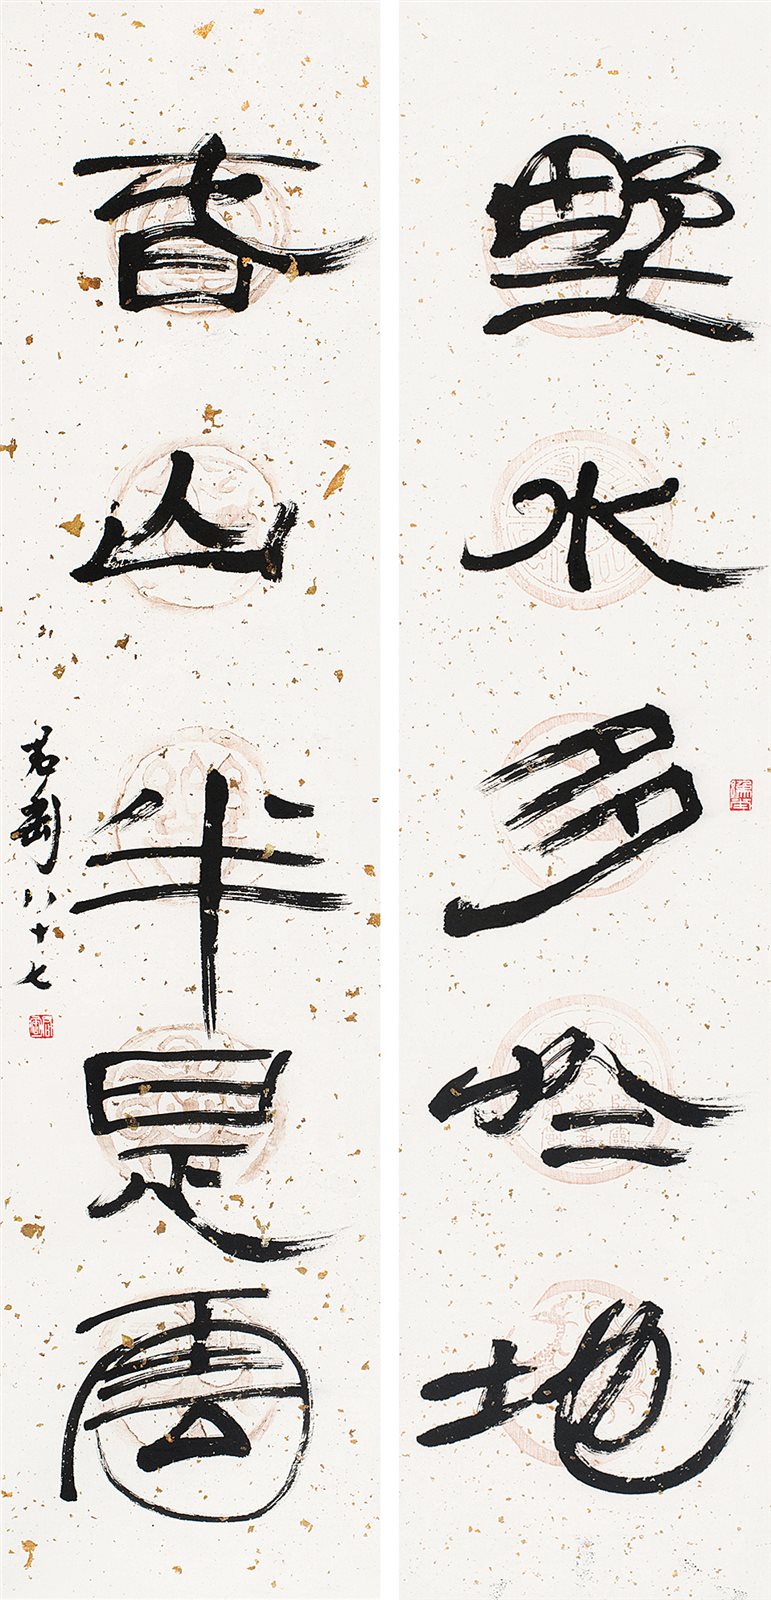 野水多於地
春山半是雲
君匋八十七